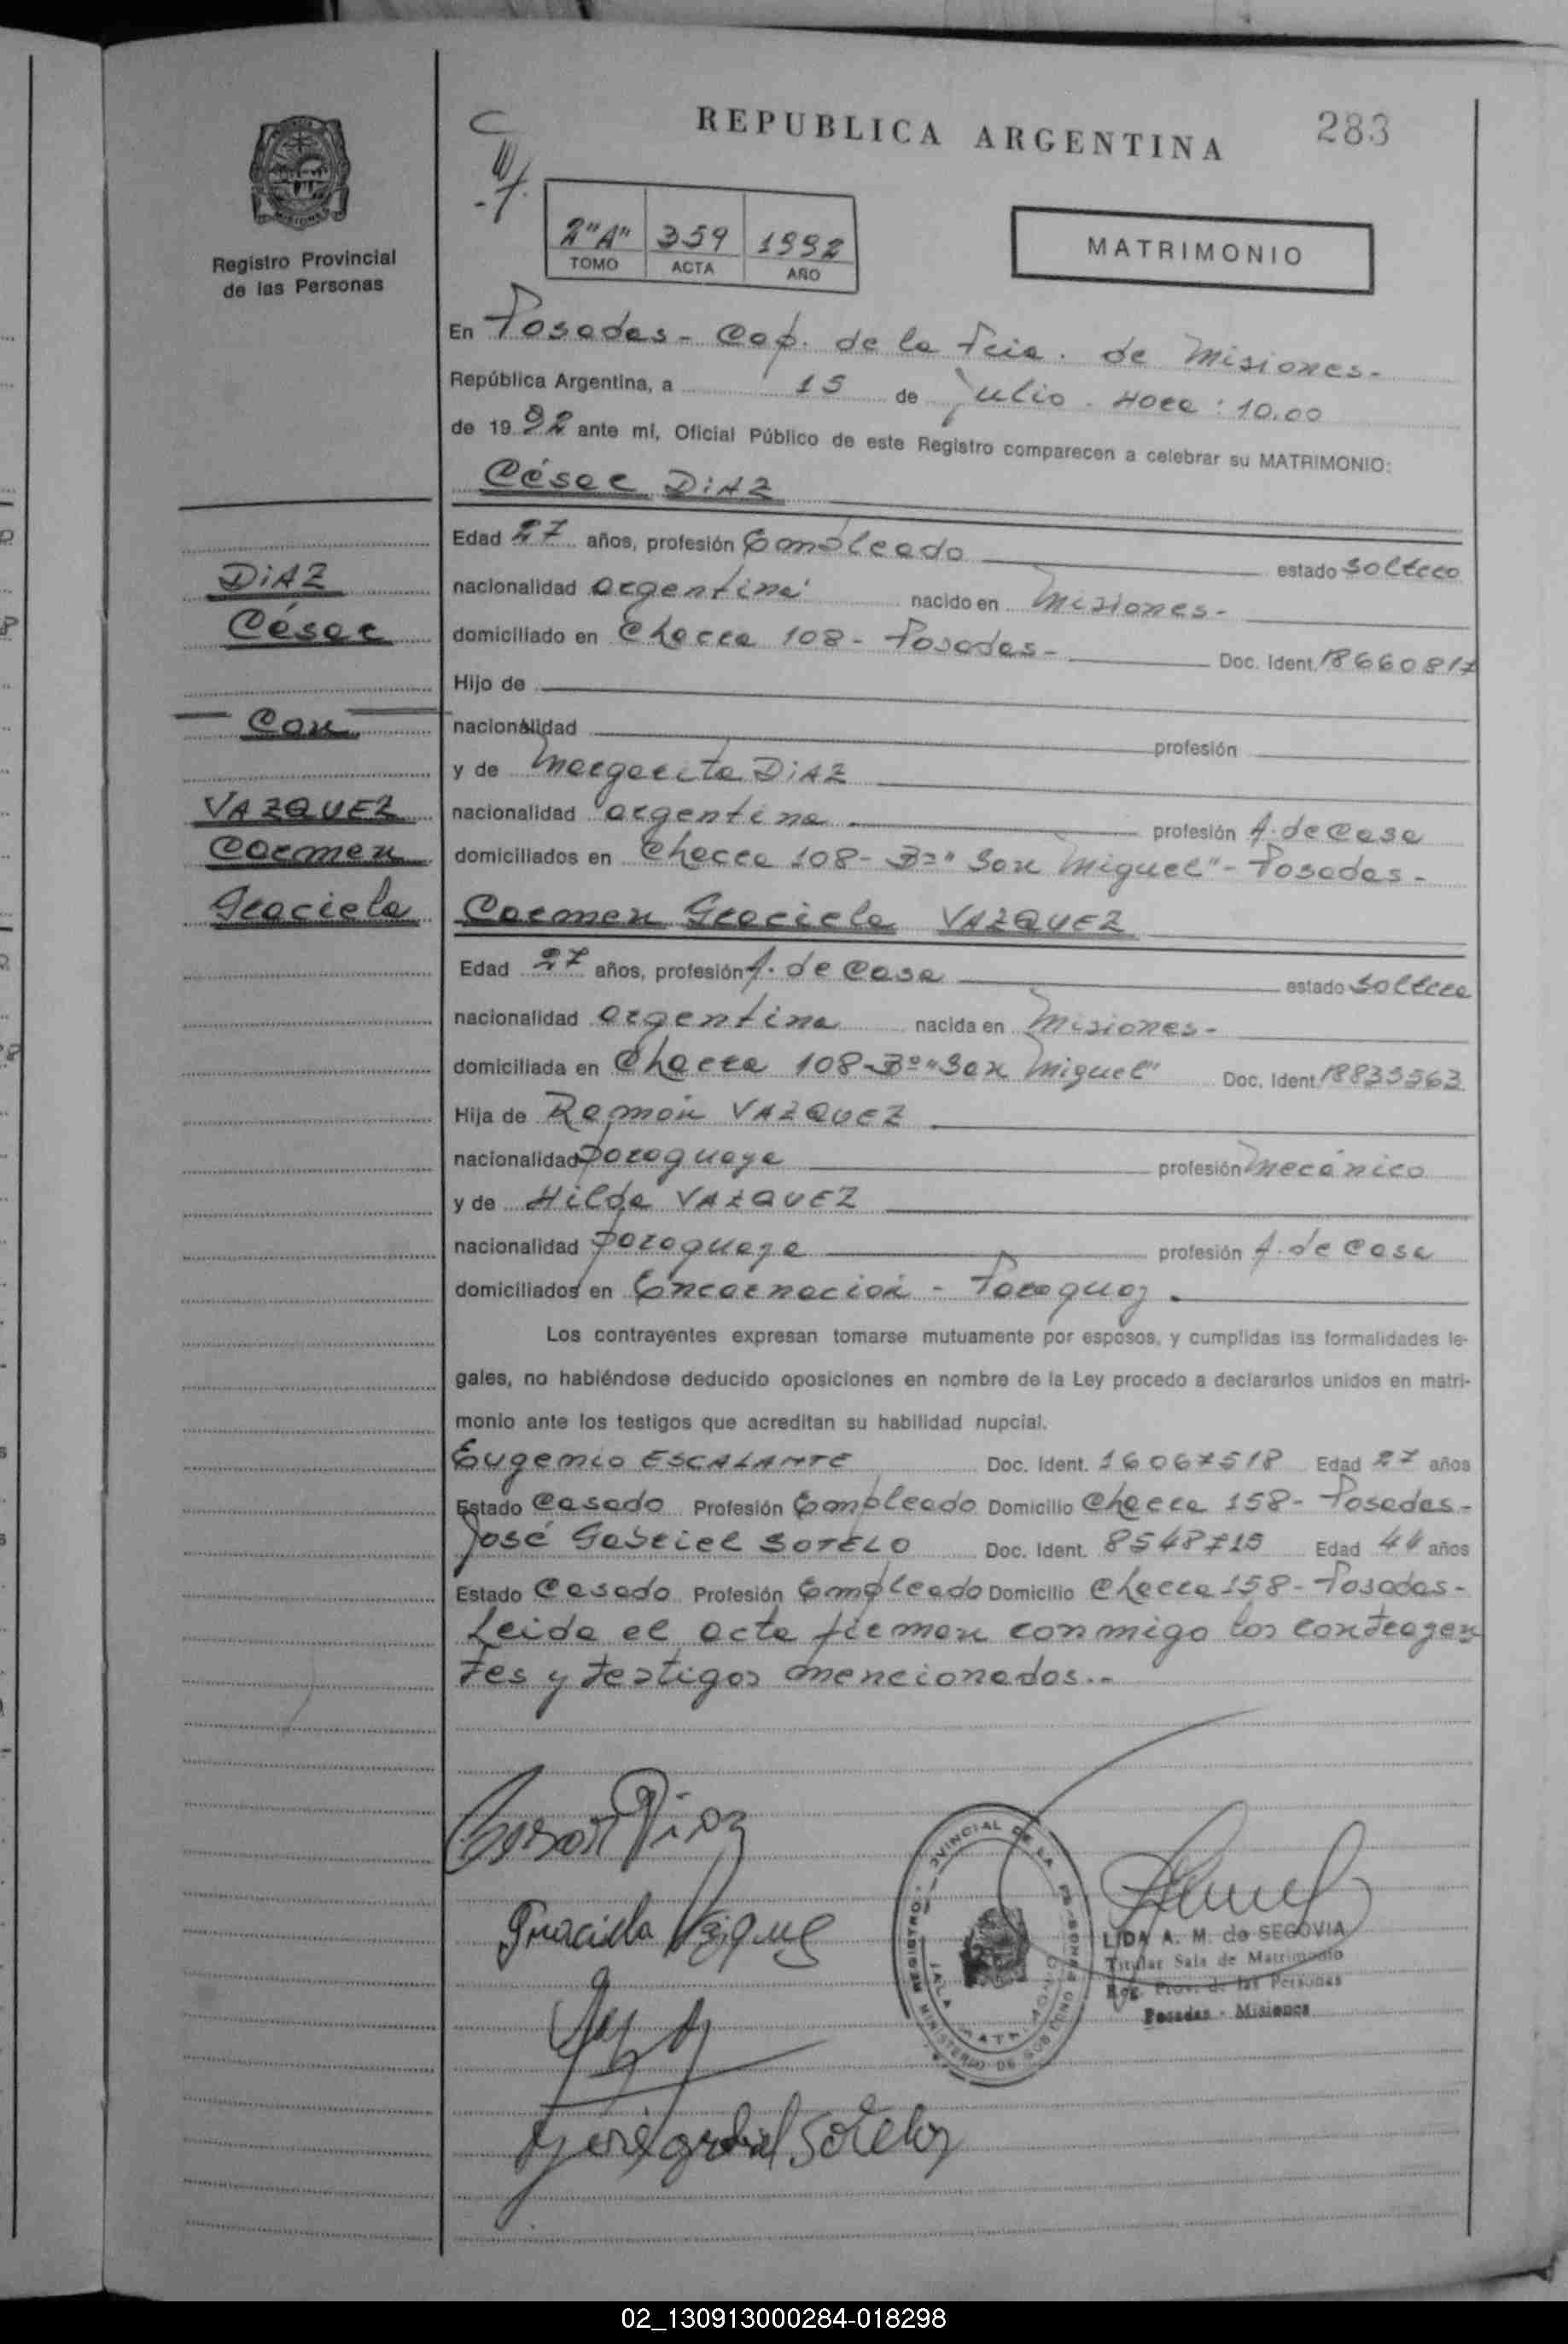 REPUBLICA ARGENTINA
283
Registro Provincial
de las Personas
2"A" 359 1992
TOMO ACTA AÑO
MATRIMONIO
En Posadas - Cap. de la Pcia. de Misiones.-
República Argentina, a 15 de Julio. Hora: 10.00
de 1992 ante mí, Oficial Público de este Registro comparecen a celebrar su MATRIMONIO:
César DiAZ
DiAZ
César
Con
VAZQUEZ
Carmen
Graciela
Edad 27 años, profesión Empleado estado soltero
nacionalidad argentina nacido en Misiones-
domiciliado en Chacra 108- Posadas- Doc. Ident. 18660817
Hijo de
nacionalidad profesión
y de Margarita DiAZ
nacionalidad argentina profesión A. de Casa
domiciliados en Chacra 108- Bº" San Miguel"- Posadas-
Carmen Graciela VAZQUEZ
Edad 27 años, profesión A. de Casa estado soltera
nacionalidad argentina nacida en Misiones-
domiciliada en Chacra 108-Bº"San Miguel" Doc. Ident. 18835563
Hija de Ramón VAZQUEZ
nacionalidad paraguaya profesión Mecánico
y de Hilda VAZQUEZ
nacionalidad paraguaya profesión A. de Casa
domiciliados en Encarnación - Paraguay.
Los contrayentes expresan tomarse mutuamente por esposos, y cumplidas las formalidades le-
gales, no habiéndose deducido oposiciones en nombre de la Ley procedo a declararlos unidos en matri-
monio ante los testigos que acreditan su habilidad nupcial.
Eugenio ESCALANTE Doc. Ident. 16067518 Edad 27 años
Estado Casado Profesión Empleado Domicilio Chacra 158- Posadas-
José Gabriel SOTELO Doc. Ident. 8548715 Edad 44 años
Estado Casado Profesión Empleado Domicilio Chacra 158- Posadas-
Leida el acta firman conmigo los contrayen
tes y testigos mencionados.-
Cesar Diaz
Graciela Vazquez
José gabriel Sotelo
LIDA A. M. de SEGOVIA
Titular Sala de Matrimonio
Reg. Prov. de las Personas
Posadas - Misiones
02_130913000284-018298